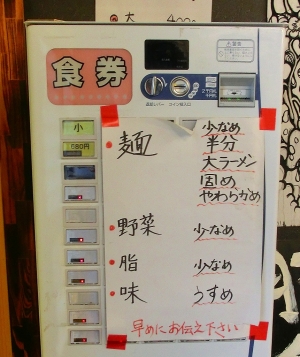 大
食券
小
680円
・麺 少なめ
半分
大ラーメン
固め
やわらかめ
・野菜 少なめ
・脂 少なめ
・味 うすめ
早めにお伝え下さい